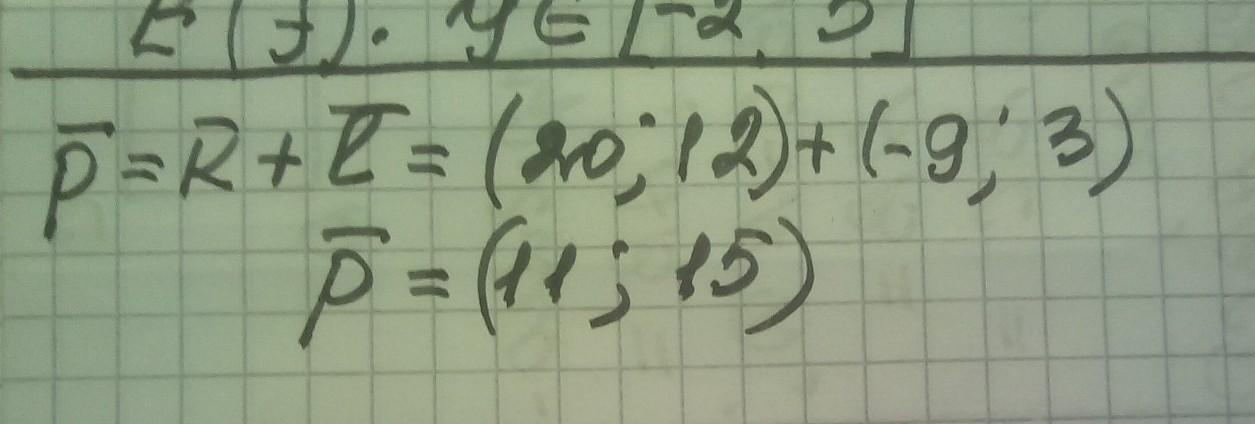 E(f). y ∈ [-2, 5]
p̅ = k̅ + l̅ = (20; 12) + (-9; 3)
p̅ = (11; 15)